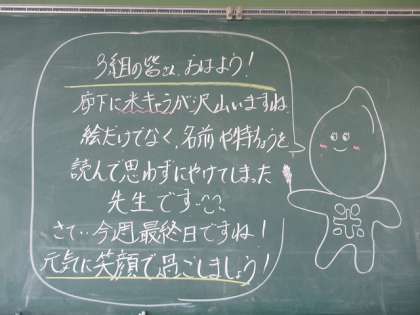 3組の皆さん、おはよう!
廊下に米キャラが沢山いますね。
絵だけでなく、名前や特ちょうを
読んで思わずにやけてしまった
先生です…
さて…今週最終日ですね!
元気に笑顔で過ごしましょう!